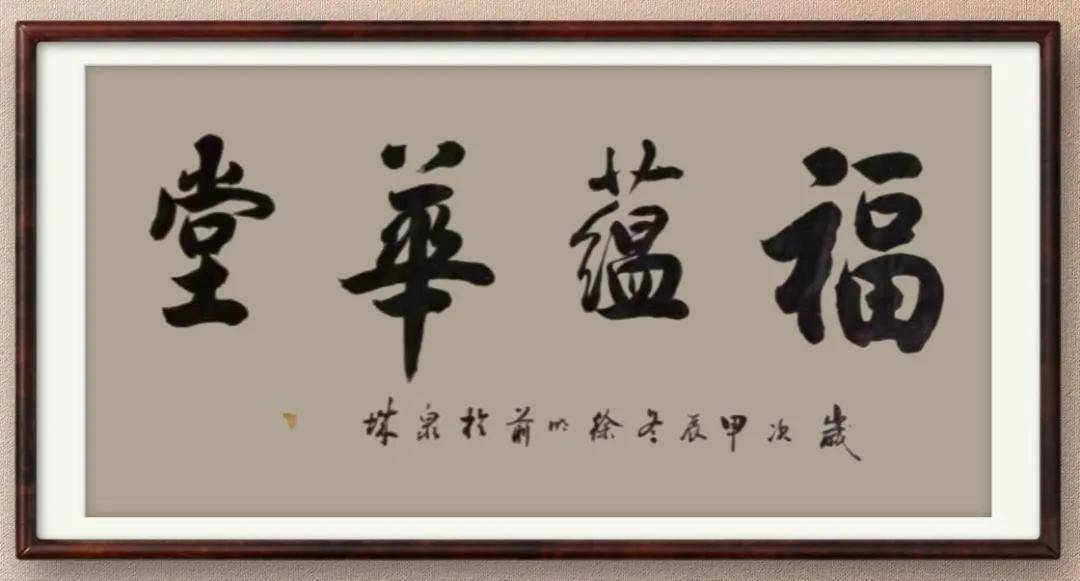 福蘊華堂
歲次甲辰冬徐明前於泉城